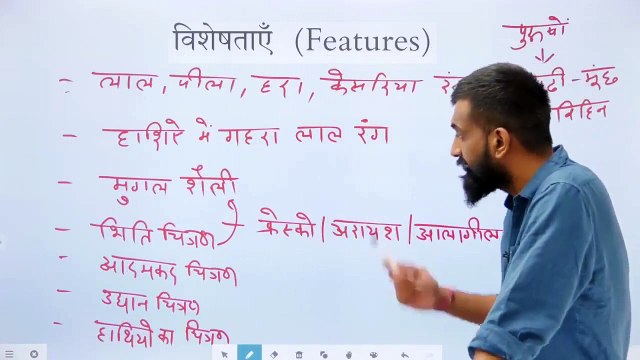 विशेषताएँ (Features)
पुरुषों
- लाल, पीला, हरा, केसरिया रं
ढ़ी-मूंछ
विहिन
- हाशिए में गहरा लाल रंग
- मुगल शैली
- भिति चित्रण फ्रेस्को / अरायश / आलागीला
- आदमकद चित्रण
- उद्यान चित्रण
- हाथियो का चित्रण